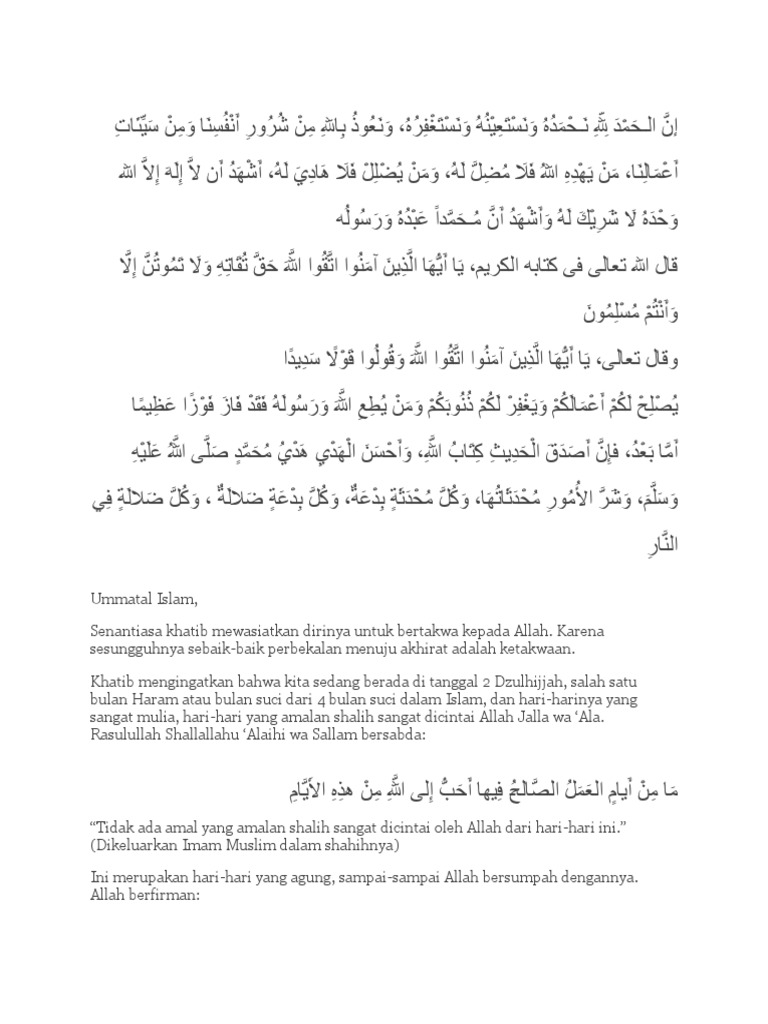 إنَّ الـحَمْدَ لِلّهِ نَـحْمَدُهُ وَنَسْتَعِيْنُهُ وَنَسْتَغْفِرُهُ، وَنَعُوذُ بِاللهِ مِنْ شُرُورِ أَنْفُسِنَا وَمِنْ سَيِّئَاتِ
أَعْمَالِنَا، مَنْ يَهْدِهِ اللهُ فَلَا مُضِلَّ لَهُ، وَمَنْ يُضْلِلْ فَلَا هَادِيَ لَهُ، أَشْهَدُ أَن لاَّ إِلَهَ إِلاَّ الله
وَحْدَهُ لَا شَرِيْكَ لَهُ وَأَشْهَدُ أَنَّ مُـحَمَّداً عَبْدُهُ وَرَسُولُه
قال الله تعالى فى كتابه الكريم، يَا أَيُّهَا الَّذِينَ آمَنُوا اتَّقُوا اللَّهَ حَقَّ تُقَاتِهِ وَلَا تَمُوتُنَّ إِلَّا
وَأَنْتُمْ مُسْلِمُونَ
وقال تعالى، يَا أَيُّهَا الَّذِينَ آمَنُوا اتَّقُوا اللَّهَ وَقُولُوا قَوْلًا سَدِيدًا
يُصْلِحْ لَكُمْ أَعْمَالَكُمْ وَيَغْفِرْ لَكُمْ ذُنُوبَكُمْ وَمَنْ يُطِعِ اللَّهَ وَرَسُولَهُ فَقَدْ فَازَ فَوْزًا عَظِيمًا
أَمَّا بَعْدُ، فإِنَّ أَصَدَقَ الْحَدِيثِ كِتَابُ اللَّهِ، وَأَحْسَنَ الْهَدْيِ هَدْيُ مُحَمَّدٍ صَلَّى اللَّهُ عَلَيْهِ
وَسَلَّمَ، وَشَرَّ الأُمُورِ مُحْدَثَاتُهَا، وَكُلَّ مُحْدَثَةٍ بِدْعَةٌ، وَكُلَّ بِدْعَةٍ ضَلالَةٌ ، وَكُلَّ ضَلالَةٍ فِي
النَّارِ
Ummatal Islam,
Senantiasa khatib mewasiatkan dirinya untuk bertakwa kepada Allah. Karena
sesungguhnya sebaik-baik perbekalan menuju akhirat adalah ketakwaan.
Khatib mengingatkan bahwa kita sedang berada di tanggal 2 Dzulhijjah, salah satu
bulan Haram atau bulan suci dari 4 bulan suci dalam Islam, dan hari-harinya yang
sangat mulia, hari-hari yang amalan shalih sangat dicintai Allah Jalla wa ‘Ala.
Rasulullah Shallallahu ‘Alaihi wa Sallam bersabda:
مَا مِنْ أَيامٍ العَمَلُ الصَّالَحُ فِيها أَحَبُّ إِلَى اللَّهِ مِنْ هذِهِ الأَيَّامِ
“Tidak ada amal yang amalan shalih sangat dicintai oleh Allah dari hari-hari ini.”
(Dikeluarkan Imam Muslim dalam shahihnya)
Ini merupakan hari-hari yang agung, sampai-sampai Allah bersumpah dengannya.
Allah berfirman: